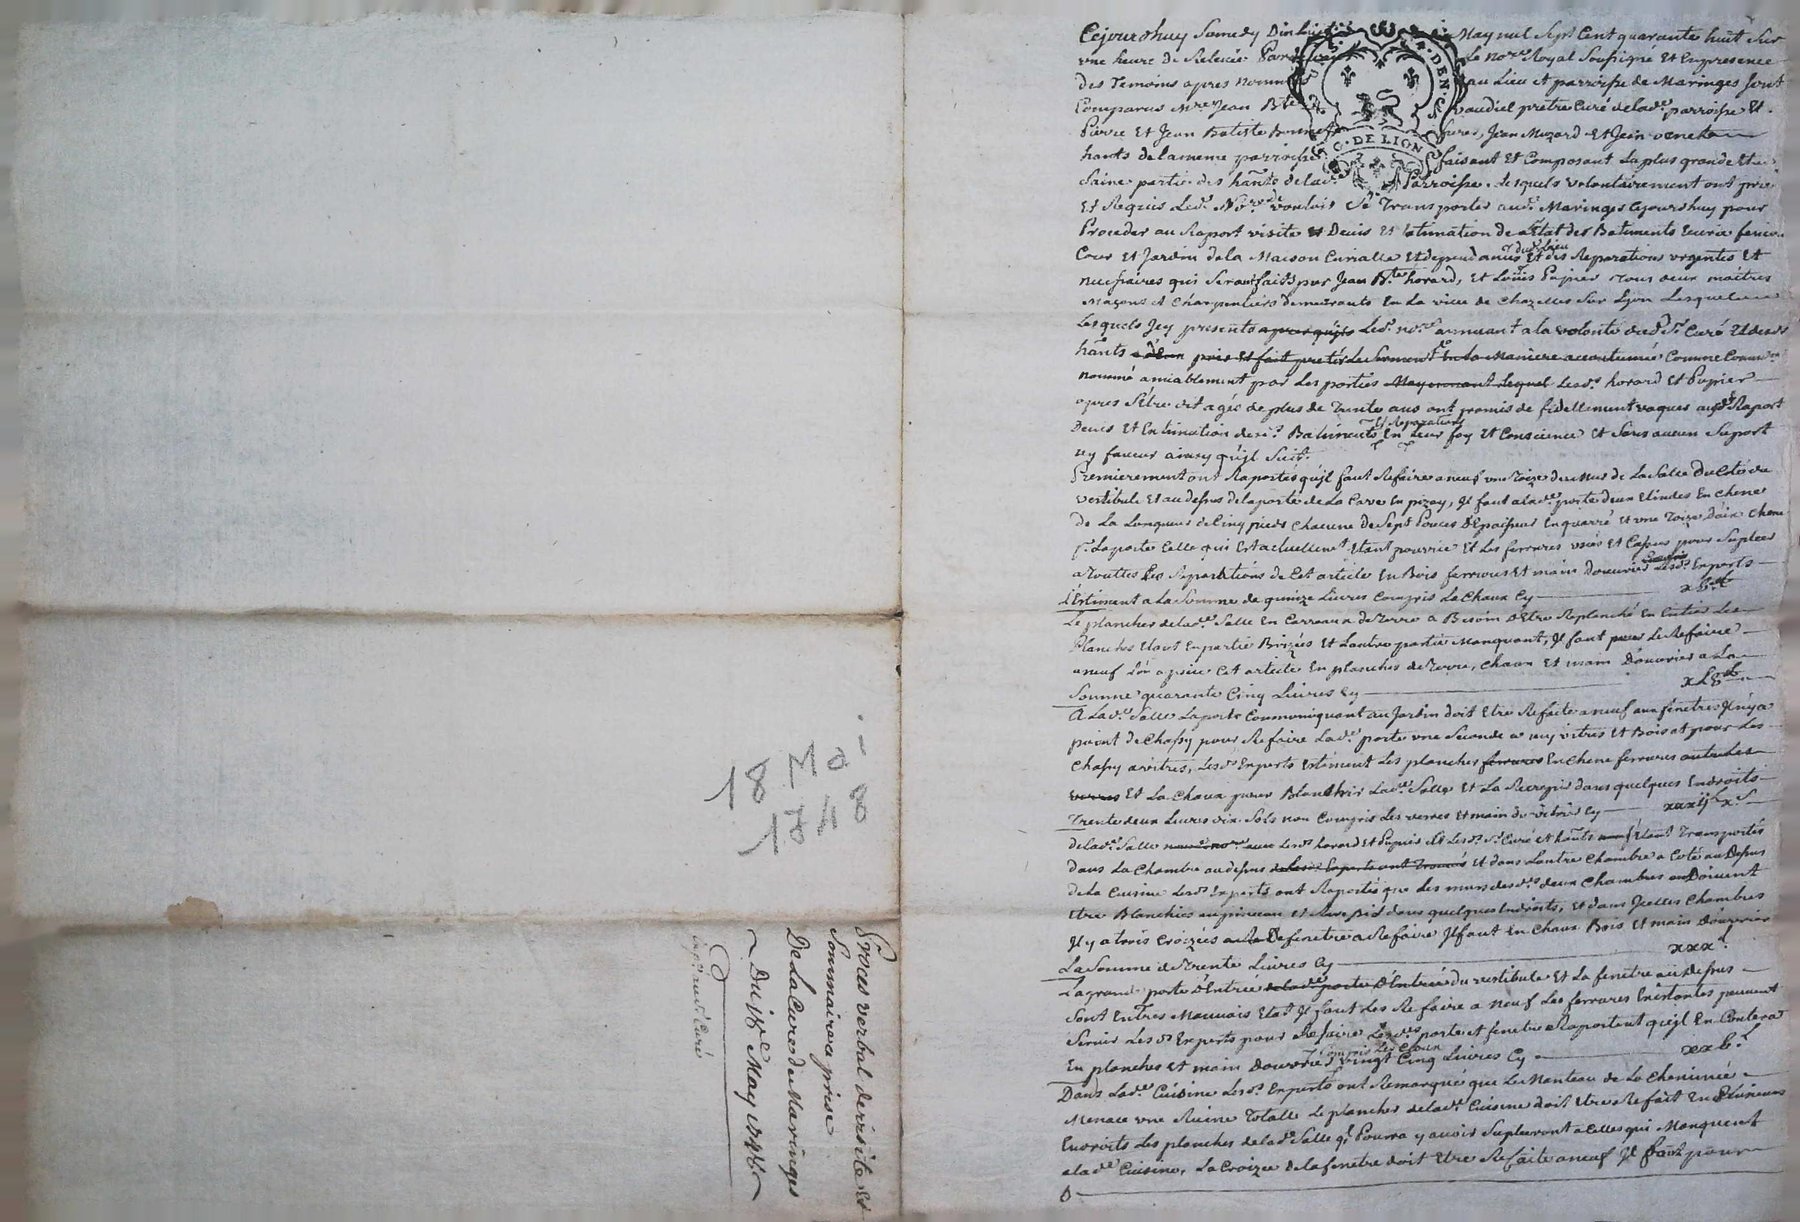 Cejourdhuy Samedy Dixhuit May mil Sept Cent quarante huit Sur
une heure de Relevée Le nore Royal Soussigné Et En presence
des Temoins apres nommés au Lieu et parroisse de Maringes Sont
Comparus Mre Jean Bte prêtre Curé de lade parroisse Et
Pierre Et Jean Batiste freres, Jean Et Jean
hants de la meme parroisse faisant Et Composant La plus grande Et
Saine partie des hants de lade Parroisse. Lesquels volontairement ont prié
Et Requis Ledt Nore vouloir Se Transporter audt Maringes Cejourdhuy pour
Proceder au Raport visite et Devis Et Estimation de Letat des Batiments Ecurie feniere
Cour Et Jardin de la Maison Curialle Et dependances dudt Lieu Et des Reparations urgentes Et
necessaires qui Seront faits par Jean Bte horard, Et Louis Pupier Tous deux maîtres
Maçons et Charpentiers demeurants En La ville de Chazelles Sur Lyon Lesquels
Lesquels Jcy presents apres qu'jls Ledt nore a la volonté dudt Sr Curé Et desds
hants pris Et fait preter Le Serment En la Maniere accoutumée Comme
nommé amiablement par Les parties Moyennant Lequel Lesds horard Et Pupier
apres S'être dit agés de plus de Trente ans ont promis de fidellement vaquer audt Raport
Devis Et Estimation desds Batiments Et Reparations En Leur foy Et Conscience Et Sans aucun Suport
ny faveur ainsy qu'jl Suit.
Premierement ont Raportés qu'jl faut Refaire a neuf une Toize de Mur de La Salle du Coté du
vestibule Et au dessus de la porte de La Cave En pizay, Jl faut a lade porte deux En Chene
de La Longueur de Cinq pieds Chacune de Sept Pouces D'Epaisseur En quarré Et une Toize Chene
pr La porte Celle qui Est actuellemt Etant pourrie Et Les ferrures usées Et Casses pour Supleer
a Touttes Les Reparations de Cet article En Bois ferrures Et main Douvrier Lesds Experts
L'Estiment a La Somme de quinze Livres Compris La Chaux Cy xv
Le plancher de lade Salle En Carreaux de Terre a Besoin D'Etre Replanché En Entier Les
Planches Etant En partie Brizés Et Lautre partie Manquant, Jl faut pour Le Refaire
a neuf Cet article En planches de Terre, Chaux Et main Douvrier a La
Somme quarante Cinq Livres Cy xLv
A Lade Salle La porte Communiquant au Jardin doit Etre Refaite a neuf aux fenetres Jl n'y a
point de Chassy pour Refaire Lade porte une Seconde vitres Et Bois et pour Les
Chassy a vitres, Lesds Experts Estiment Les planches ferrures En Chene ferrures
verres Et La Chaux pour Blanchir Lade Salle Et La Recrepir dans quelques Endroits
Trente deux Livres dix Sols non Compris Les verres Et main du vitrier Cy xxxij L x S
de lade Salle Lesds horard Et Pupier Et Lesds Sr Curé et hants Etant Transportés
dans La Chambre au dessus Lesds Experts ont Et dans Lautre Chambre a Coté au Dessus
de La Cuisine Lesds Experts ont Raportés que Les murs desdes deux Chambres Doivent
Etre Blanchies au pinceau et dans quelques Endroits, Et dans Jcelles Chambres
Jl y a trois Croizées de fenetre a Refaire Jl faut En Chaux Bois Et main Douvrier
La Somme de Trente Livres Cy xxx L
La grande porte D'Entrée de lade porte D'Entrée du vestibule Et La fenetre au Dessus
Sont En tres Mauvais Etat Jl faut Les Refaire a neuf Les ferrures Existantes peuvent
Servir Lesds Experts pour Refaire Lesdes porte et fenetre Raportent qu'jl En Coutera
En planches Et main Douvrier y Compris Les Cloux vingt Cinq Livres Cy xxv L
Dans Lade Cuisine Lesds Experts ont Remarqué que Le Manteau de La Cheminée
Menace une Ruine Totalle Le plancher de lade Cuisine doit Etre Refait En Plusieurs
Endroits Les planches de lade Salle qe Pourra y avoir Supleeront a Celles qui Manquent
a lade Cuisine, La Croizée de la fenetre doit Etre Refaite a neuf Jl faut pour
G. DE LION
18 Mai
1748
Proces verbal de visite Et
Sommaire aprise
De La Cure de Maringes
Du 18e May 1748